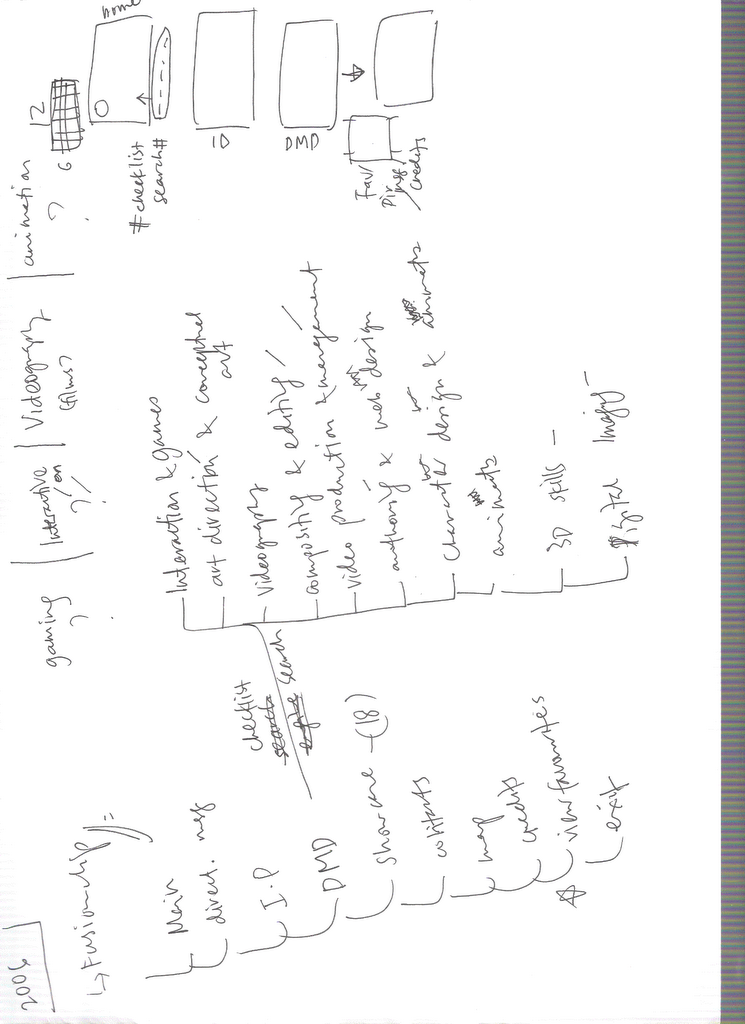 2006
↳ Fusionchip
Main
direct. msg
I.P
DMD
Showcase -(18)
contacts
map
credits
☆ view favourites
exit
checklist
search
gaming
?
Interactive
?
Videography
(films?)
animation
?
Interaction & games
art direction & conceptual
art
videography
compositing & editing
video production & management
authoring & web design
character design &
animatics
3D skills -
Digital Imaging -
12
6
home
#checklist
search#
ID
DMD
Fav/
Dir
msg
/credits